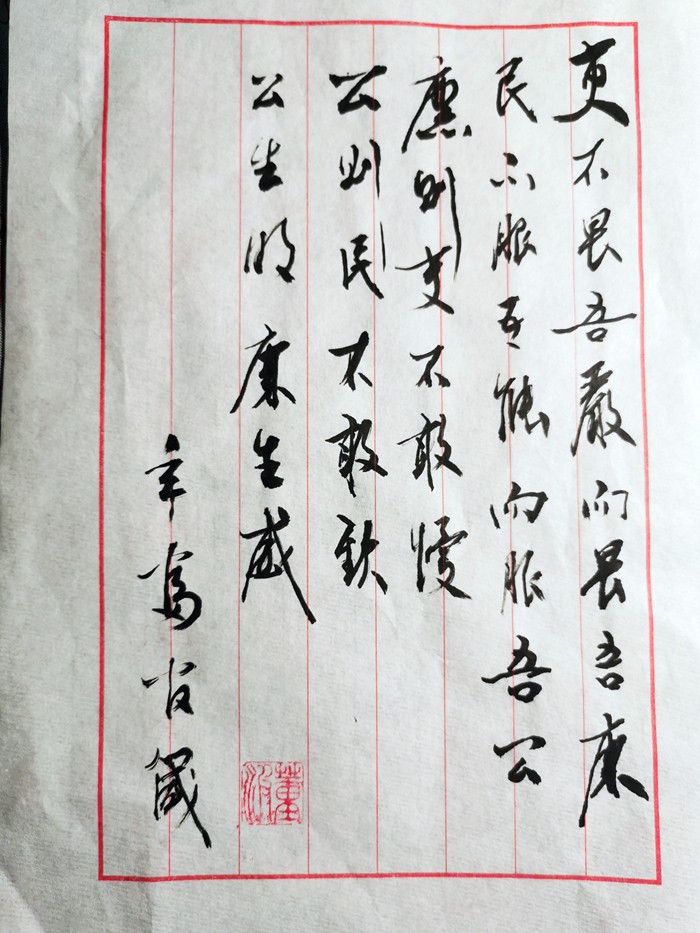 吏不畏吾嚴而畏吾廉
民不服吾能而服吾公
廉则吏不敢慢
公则民不敢欺
公生明 廉生威
年富官箴
董